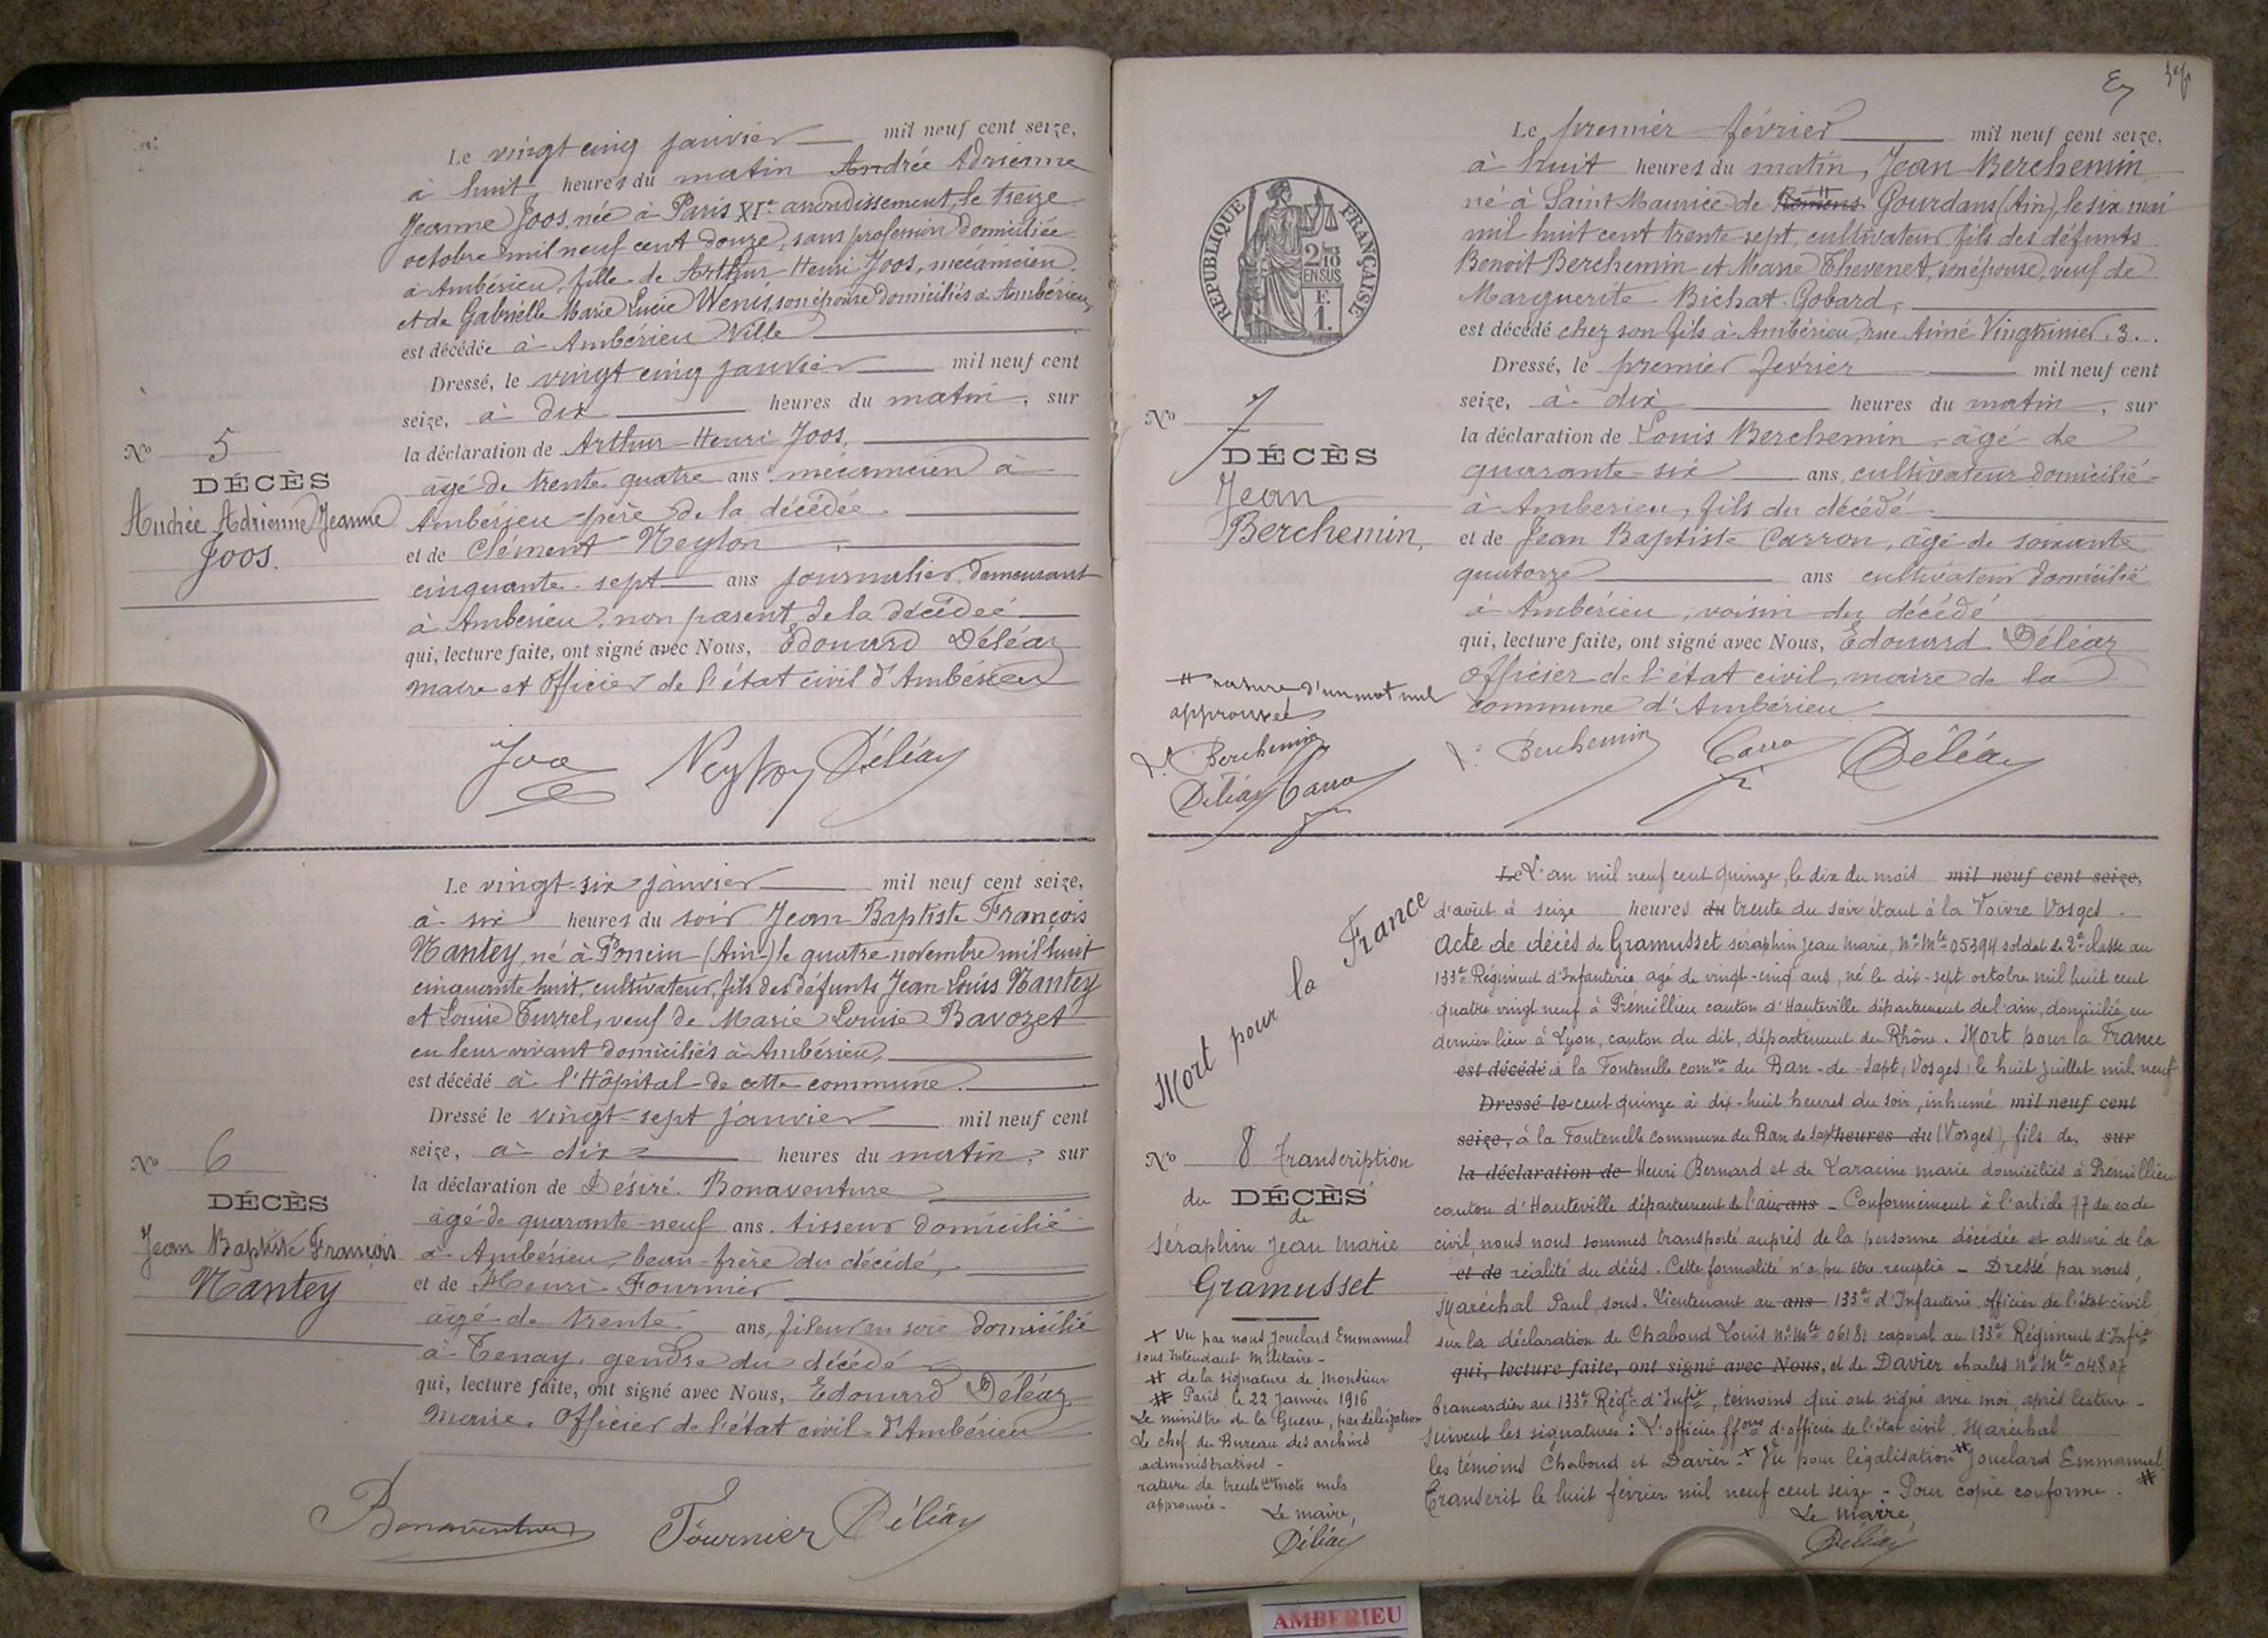 Le vingt cinq janvier mil neuf cent seize,
à huit heures du matin Andrée Adrienne
Jeanne Joos, née à Paris XIe arrondissement, le treize
octobre mil neuf cent douze, sans profession domiciliée
à Ambérieu, fille de Arthur Henri Joos, mécanicien
et de Gabrielle Marie Lucie Wenis, son épouse domiciliés à Ambérieu,
est décédée à Ambérieu Ville
Dressé, le vingt cinq janvier mil neuf cent
seize, à dix heures du matin, sur
la déclaration de Arthur-Henri Joos,
âgé de trente quatre ans mécanicien à
Ambérieu père de la décédée
et de Clément Neyton
cinquante-sept ans journalier demeurant
à Ambérieu, non parent de la décédée
qui, lecture faite, ont signé avec Nous, Edouard Déléaz
maire et Officier de l'état civil d'Ambérieu
Joos Neyton Déléaz
No 5
DÉCÈS
Andrée Adrienne Jeanne
Joos.
Le vingt-six janvier mil neuf cent seize,
à six heures du soir Jean Baptiste François
Nantey, né à Poncin (Ain) le quatre novembre mil huit
cinquante huit, cultivateur, fils des défunts Jean Louis Nantey
et Louise Turrel, veuf de Marie Louise Bavozet
en leur vivant domiciliés à Ambérieu,
est décédé à l'Hôpital de cette commune.
Dressé le vingt-sept janvier mil neuf cent
seize, à dix heures du matin, sur
la déclaration de Désiré Bonaventure
âgé de quarante-neuf ans. tisseur domicilié
à Ambérieu, beau-frère du décédé,
et de Henri Fournier
âgé de trente ans, fileur en soie domicilié
à Tenay, gendre du décédé
qui, lecture faite, ont signé avec Nous, Edouard Déléaz
Maire, Officier de l'état civil d'Ambérieu
Bonaventure Fournier Déléaz
No 6
DÉCÈS
Jean Baptiste François
Nantey
RÉPUBLIQUE FRANÇAISE
2/10
EN SUS
F.
1.
Le premier février mil neuf cent seize,
à huit heures du matin, Jean Berchemin
né à Saint Maurice de Rémens Gourdans (Ain), le six mai
mil huit cent trente-sept, cultivateur, fils des défunts
Benoit Berchemin et Marie Thevenet, son épouse, veuf de
Marguerite Bichat-Gobard,
est décédé chez son fils à Ambérieu, rue Aimé Vingtrinier, 3.
Dressé, le premier février mil neuf cent
seize, à dix heures du matin, sur
la déclaration de Louis Berchemin, âgé de
quarante-six ans, cultivateur domicilié
à Ambérieu, fils du décédé
et de Jean Baptiste Carron, âgé de soixante
quatorze ans cultivateur domicilié
à Ambérieu, voisin du décédé
qui, lecture faite, ont signé avec Nous, Edouard Déléaz
Officier de l'état civil, maire de la
commune d'Ambérieu
Berchemin Carro Déléaz
No 7
DÉCÈS
Jean
Berchemin,
# rature d'un mot nul
approuvée
Berchemin
Déléaz Carro
Le L'an mil neuf cent quinze, le dix du mois mil neuf cent seize,
d'août à seize heures du trente du soir étant à la Voivre Vosges.
Acte de décès de Gramusset séraphin Jean Marie, No Mle 05394 soldat de 2e classe au
133e Régiment d'Infanterie agé de vingt-cinq ans, né le dix-sept octobre mil huit cent
quatre vingt neuf à Prémillieu canton d'Hauteville département de l'ain, domicilié en
dernier lieu à Lyon, canton du dit, département du Rhône. Mort pour la France
est décédé à la Fontenelle comne du Ban-de-Sapt, Vosges, le huit Juillet mil neuf
Dressé le cent quinze à dix-huit heures du soir, inhumé mil neuf cent
seize, à la Fontenelle commune du Ban de Sapt heures du (Vosges), fils de, sur
la déclaration de Henri Bernard et de Laracine marie domiciliés à Prémillieu
canton d'Hauteville département de l'ain ans - Conformément à l'article 77 du code
civil, nous nous sommes transporté auprès de la personne décédée et assuré de la
et de réialité du décès. Cette formalité n'a pu être remplie - Dressé par nous,
Maréchal Paul, sous-Lieutenant au ans 133e d'Infanterie, officier de l'état civil
sur la déclaration de Chaboud Louis No Mle 06181 caporal au 133e Régiment d'Infie
qui, lecture faite, ont signé avec Nous, et de Davier charles No Mle 04807
brancardier au 133e Régt d'Infie, témoins qui ont signé avec moi, après lecture -
suivent les signatures: L'officier ffons d'officier de l'état civil, Maréchal
les témoins Chaboud et Davier - x Vu pour légalisation # Jouclard Emmanuel #
Transcrit le huit février mil neuf cent seize - Pour copie conforme.
Le Maire,
Déléaz
Mort pour la France
No 8 Transcription
du DÉCÈS
de
Séraphin Jean Marie
Gramusset
x Vu par nous Jouclard Emmanuel
sous Intendant Militaire -
# de la signature de Monsieur
# Paris le 22 Janvier 1916
Le ministre de la Guerre, par délégation
Le chef du Bureau des archives
administratives -
rature de trente un mots nuls
approuvée -
Le maire,
Déléaz
AMBERIEU